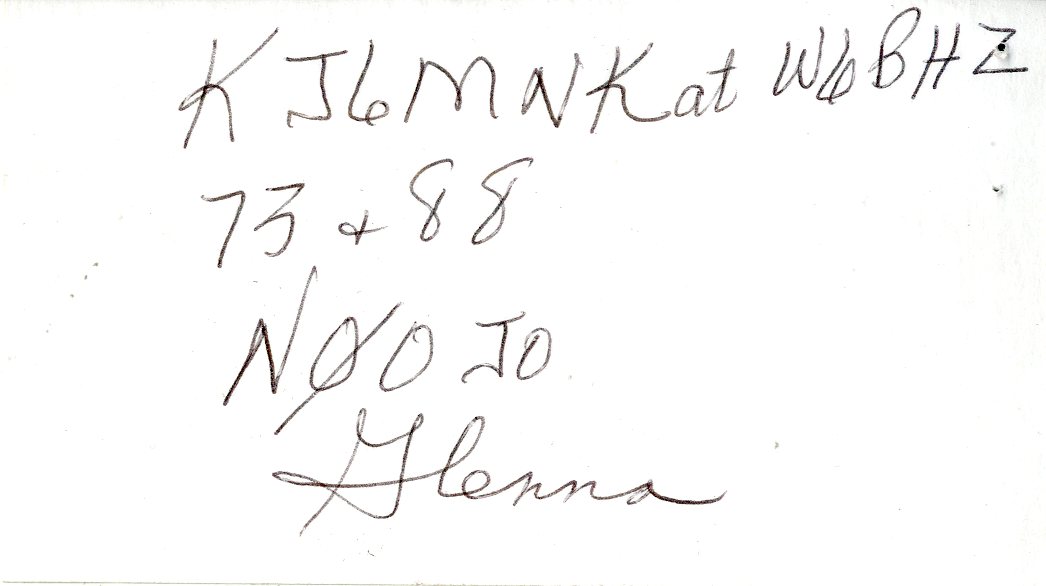 KJ6MNK at W6BHZ
73 + 88
NØOJO
Glenna